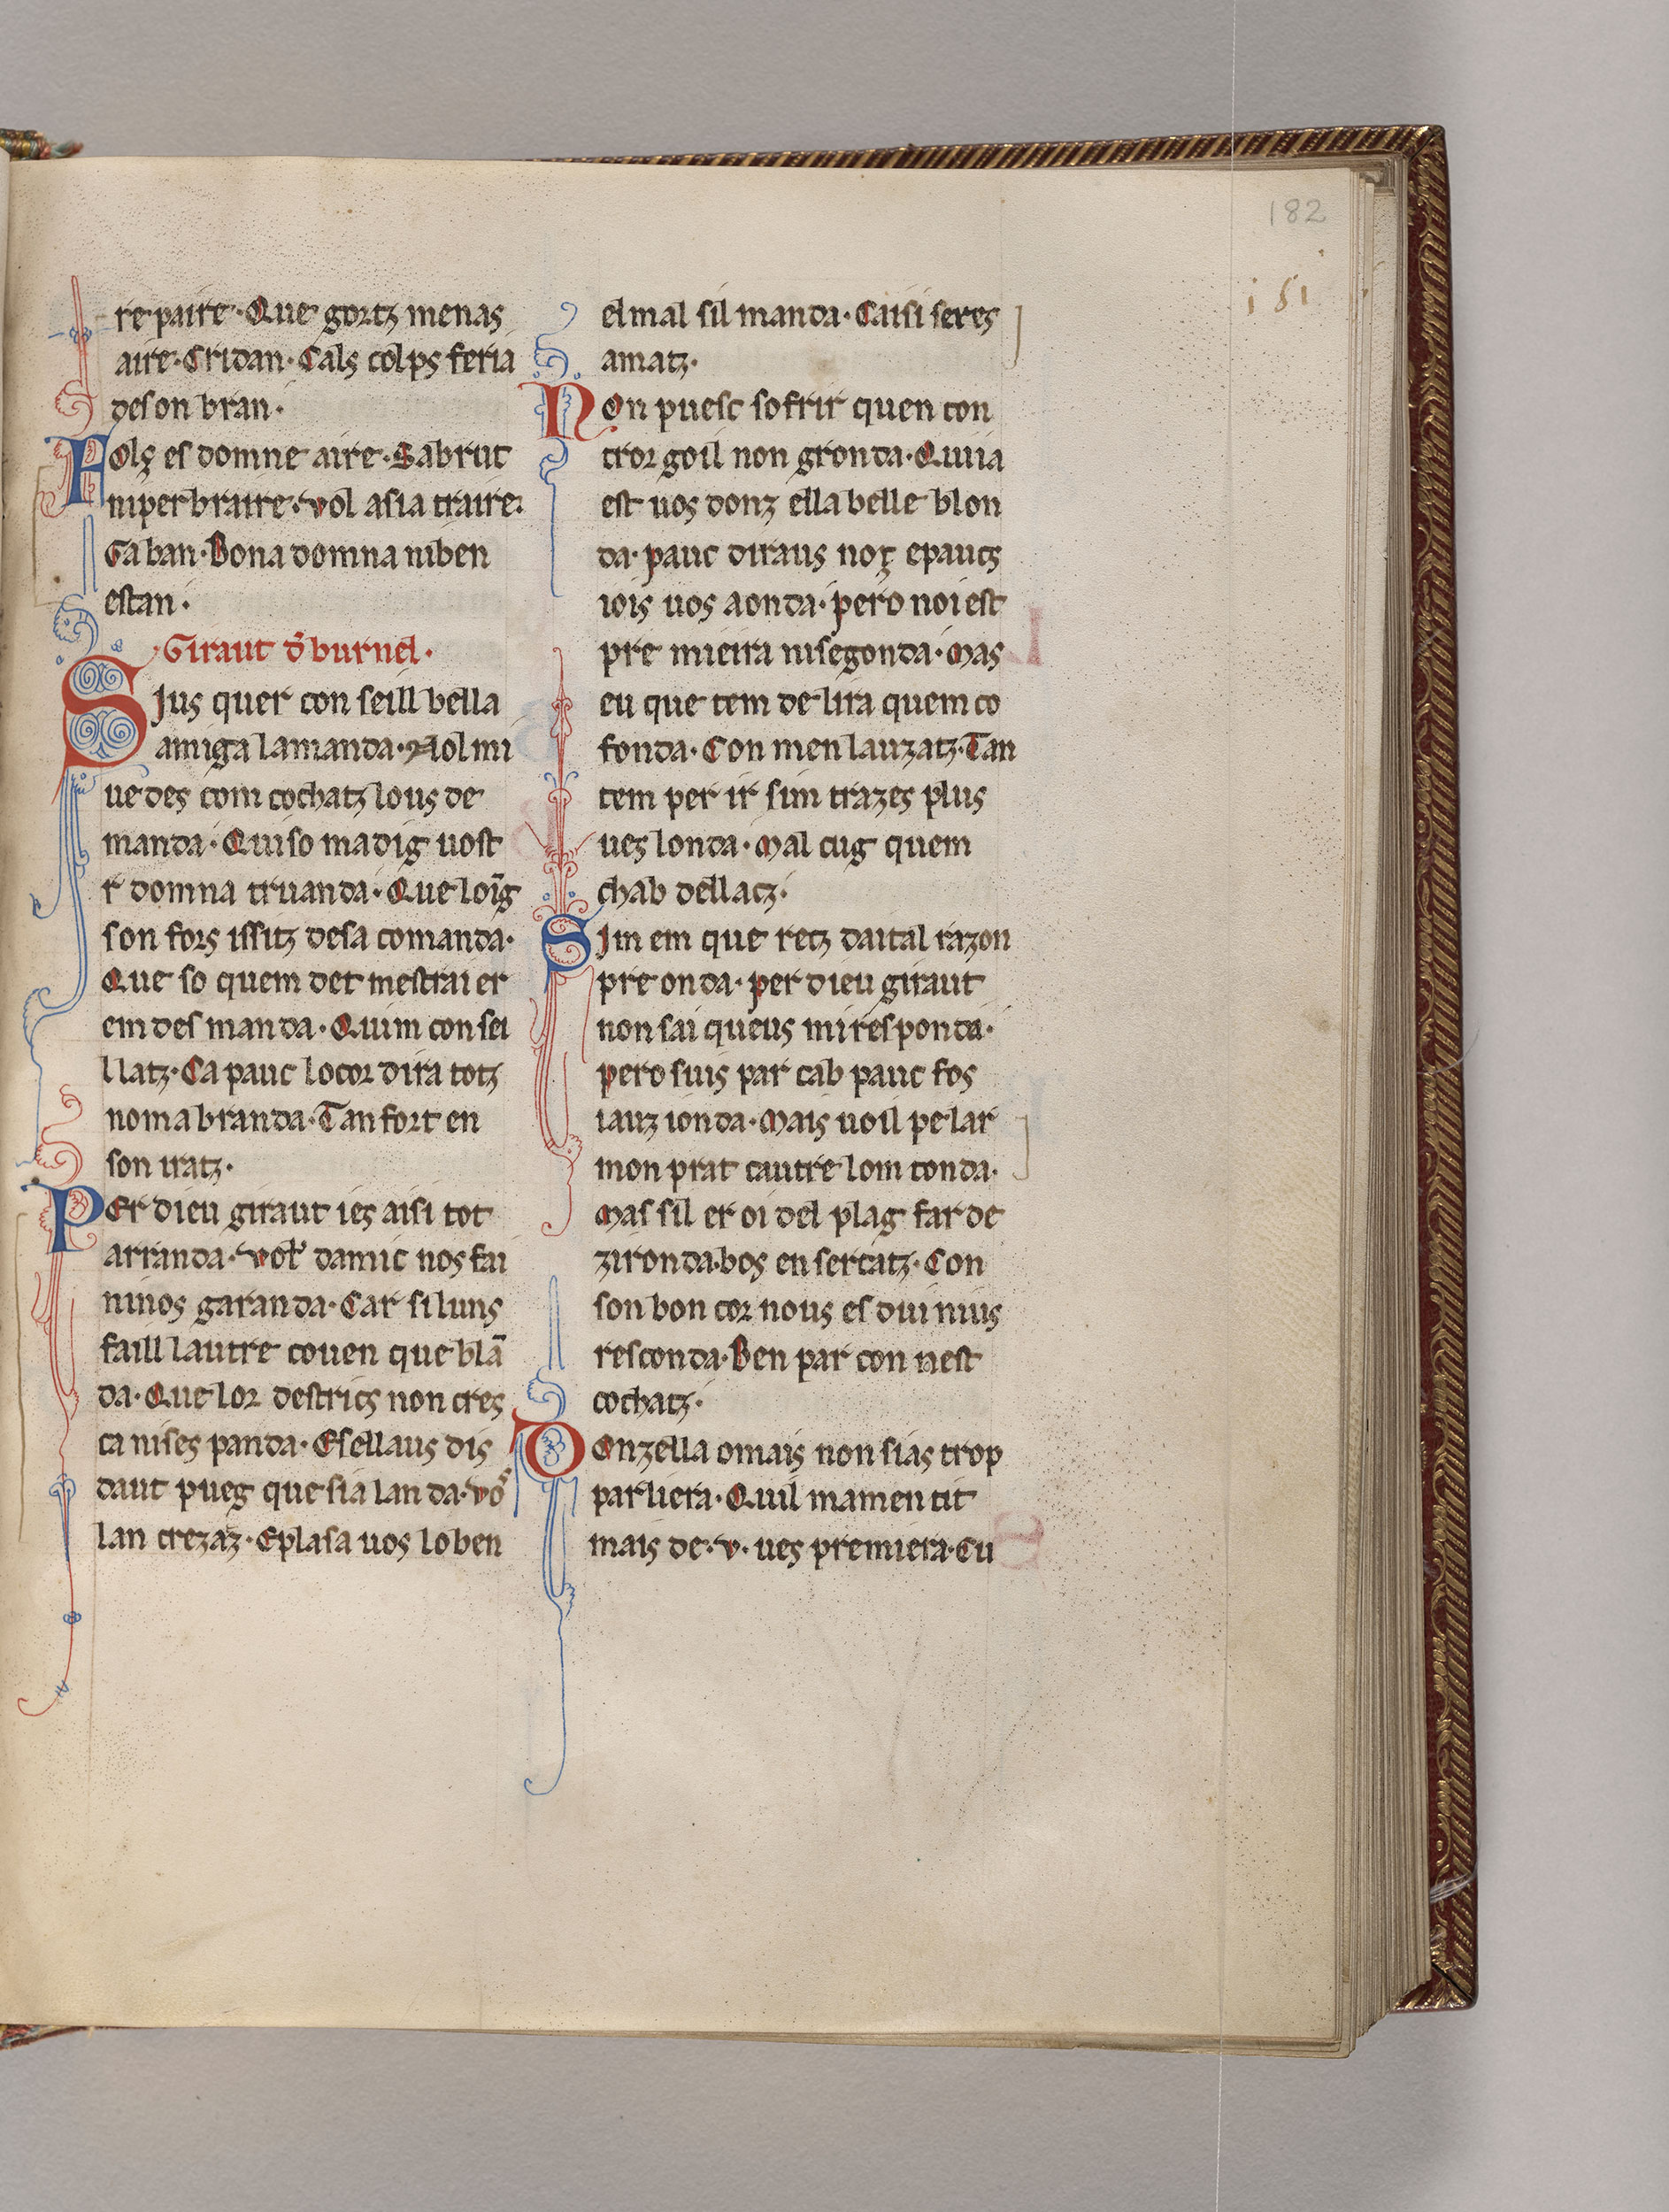 182
181
re paire · Que gortz menas
aire · Cridan · Cals colps feria
deson bran ·
Fols es domne aire · Sabrut
niperbraire · vol asia traire ·
Gaban · Bona domna niben
estan ·
· Giraut d̄ burnel ·
SIus quer con seill bella
amiga lamanda · Nol mi
uedes com cochatz lous de
manda · Qui so ma dig uost
r domna truanda · Que loīg
son fors issitz desa comanda ·
Que so quem det mestrai er
em des manda · Quim con sei
llatz · Ca pauc lo cor dira totz
nom abranda · Tan fort en
son iratz ·
PEr dieu giraut ies aisi tot
arranda · volr̄ damic nos fai
ninos garanda · Car si luns
faill lautre couen que blā
da · Que lor destrics non cres
ca nises panda · E sellaus dis
daut pueg que sia lan da · vos
lan crezaz · Eplasa uos lo ben
el mal sil manda · Caisi seres
amatz ·
NOn puesc sofrir quen con
tror goil non gronda · Quuia
est uos donz ella belle blon
da · pauc diraus noz epaucs
iois uos aonda · pero noi est
pre mieira nisegonda · Mas
eu que tem de lira quem co
fonda · Con men lauzatz · Tan
tem per ir sim trazes plus
ues londa · Mal cug quem
chab dellatz ·
SIm em que retz daital razon
pre onda · per dieu giraut
non sai queus mi responda ·
pero suis par cab pauc fos
iauz ionda · Mais uoil pelar
mon prat cautre lom tonda ·
Mas sil er oi del plag far de
zironda · bos en sercatz · Con
son bon cor nous es dui nius
resconda · Ben par con nest
cochatz ·
DOnzella omais non sias trop
parliera · Quil mamen tit
mais de · v · ues premiera · Cu